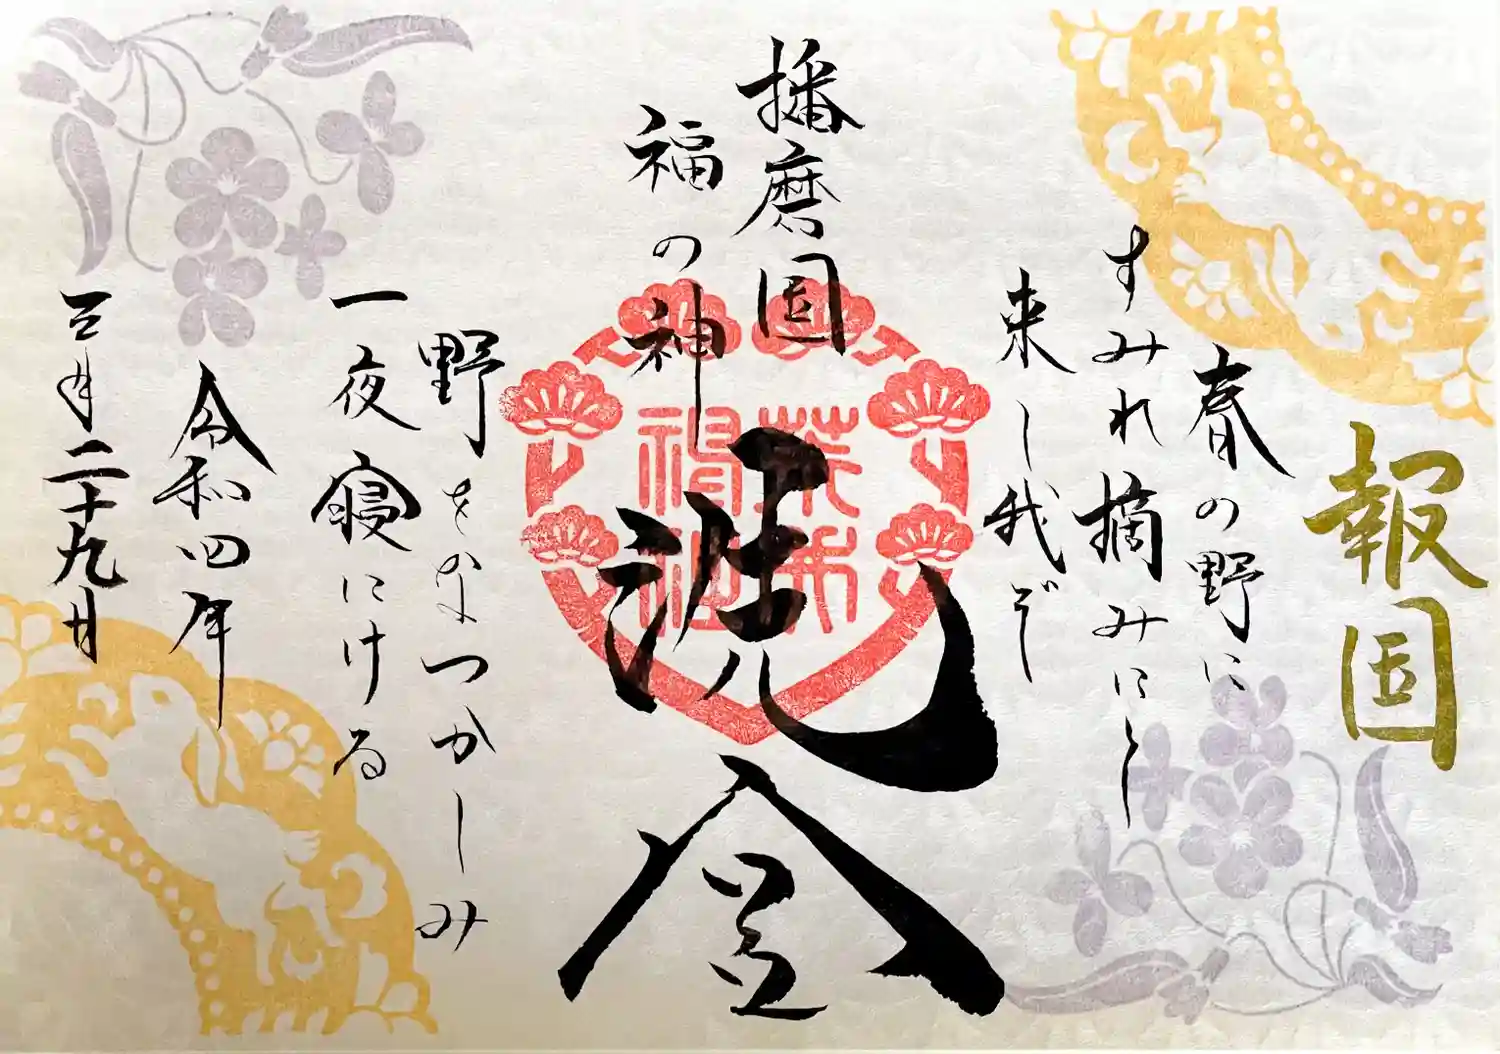 報国
春の野に
すみれ摘みにと
来し我ぞ
播磨国
福の神
洗金
野をなつかしみ
一夜寝にける
令和四年
三月二十九日